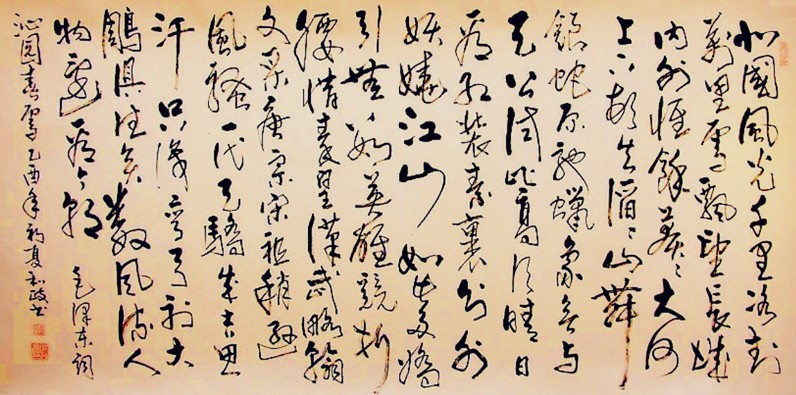 北國風光千里冰封
萬里雪飄望長城
內外惟餘莽〻大河
上下頓失滔〻山舞
銀蛇原馳蠟象欲與
天公試比高須晴日
看紅裝素裹分外
妖嬈江山如此多嬌
引無數英雄競折
腰惜秦皇漢武略輸
文采唐宗宋祖稍遜
風騷一代天驕成吉思
汗只識彎弓射大
鵰俱往矣數風流人
物還看今朝 毛澤東詞
沁園春雪 乙酉年初夏